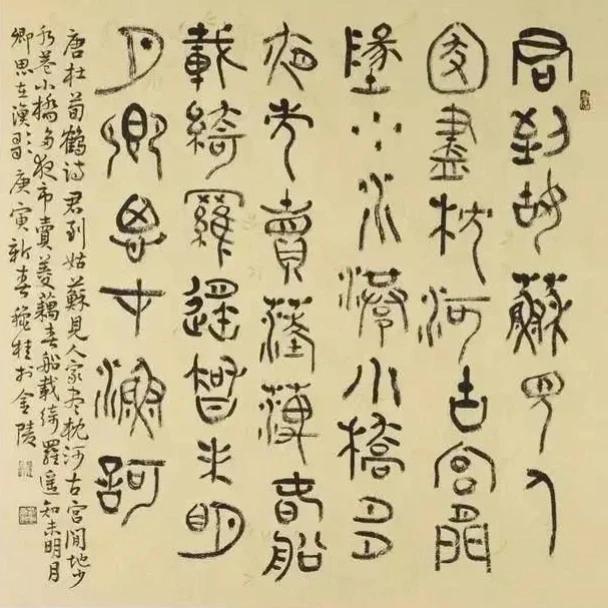 君到姑蘇見人
家盡枕河古宮閒
地少水港小橋多
夜市賣菱藕春船
載綺羅遙知未明
月鄉思在漁歌
唐杜荀鶴詩君到姑蘇見人家盡枕河古宮閒地少
水巷小橋多夜市賣菱藕春船載綺羅遙知未明月
鄉思在漁歌庚寅新春桂於金陵